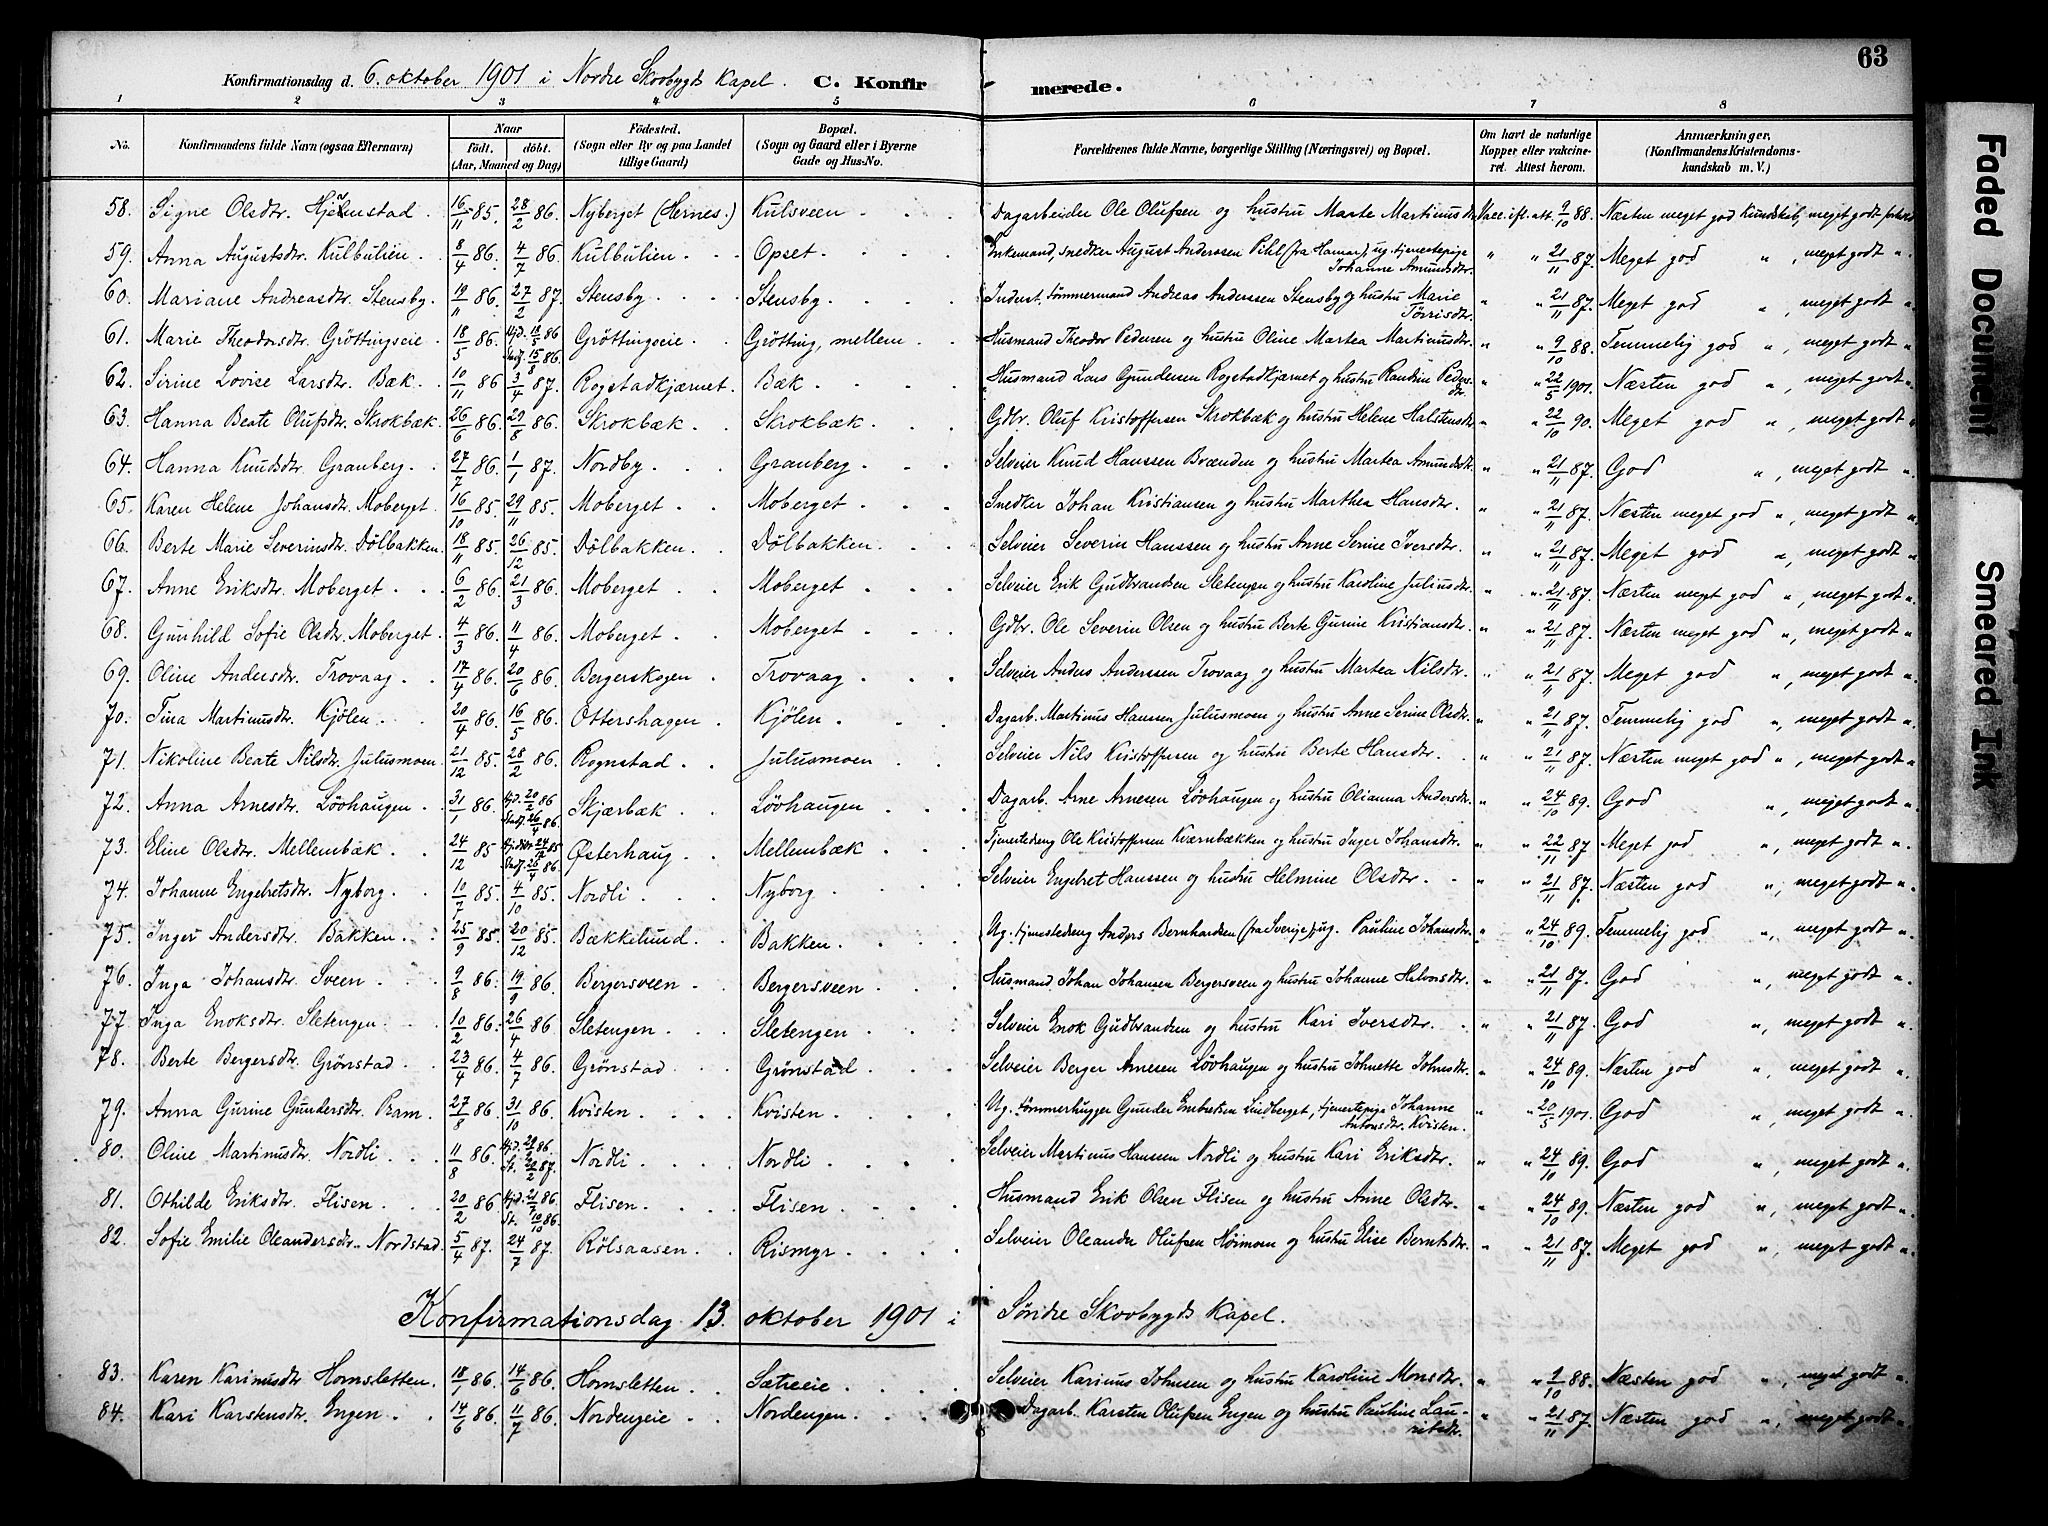 63
Konfirmationsdag d. 6. oktober 1901 i Nordre Skovbygds Kapel. C. Konfirmerede.
1 2 3 4 5 6 7 8
No. Konfirmandens fulde Navn (ogsaa Efternavn) Naar födt. döbt. (Aar, Maaned og Dag) Födested. (Sogn eller By og paa Landet tillige Gaard) Bopæl. (Sogn og Gaard eller i Byerne Gade og Hus-No. Forældrenes fulde Navne, borgerlige Stilling (Næringsvei) og Bopæl. Om havt de naturlige Kopper eller vaccineret. Attest herom. Anmærkninger. (Konfirmandens Kristendomskundskab m. V.)
58. Signe Olsdtr. Hjelmstad. 16/11 85. 28/2 86. Nyberget (Hernes.) Kulsveen Dagarbeider Ole Olufsen og hustru Marte Martinusdtr. Vacc. ifl. att. 9/10 88. Næsten meget god Kundskab, meget godt forhold
59. Anna Augustsdtr. Kulbulien. 8/4 86. 4/7 86. Kulbulien. Opset. Enkemand, snedker August Anderssen Pihl (fra Hamar), ug. tjenestepige Johanne Amundsdtr. " " 21/11 87. Meget god ", meget godt ".
60. Mariane Andreasdtr. Stensby. 19/11 86. 27/2 87. Stensby. Stensby. Inderst. tømmermand Andreas Anderssen Stensby og hustru Marie Tørrisdtr. " " 21/11 87. Meget god ", meget godt "
61. Marie Theodorsdtr. Gröttingseie 18/5 86. Hjd. 18/5 86 Stadf. 15/8 86. Gröttingseie Grötting, mellem Husmand Theodor Pedersen og hustru Oline Martea Martinusdtr. " " 9/10 88. Temmelig god ", meget godt "
62. Sirine Lovise Larsdtr. Bæk. 10/11 86 3/4 87. Rogstadkjærnet. Bæk Husmand Lars Gundersen Rogstadkjærnet og hustru Randine Pedersdtr. " " 22/5 1901. Næsten god ", meget godt "
63. Hanna Beate Olufsdtr. Skrokbæk 26/6 86. 29/8 86. Skrokbæk. Skrokbæk Gdbr. Oluf Kristoffersen Skrokbæk og hustru Helene Halstensdtr. " " 22/10 90. Meget god ", meget godt "
64. Hanna Knudsdtr. Granberg. 27/7 86. 1/1 87. Nordby. Granberg Selveier Knud Hanssen Brænden og hustru Martea Amundsdtr. " " 21/11 87. God ", meget godt ".
65. Karen Helene Johansdtr. Moberget. 16/10 85. 29/11 85. Moberget Moberget Snedker Johan Kristiansen og hustru Marthea Hansdtr. " " 21/11 87. Næsten meget god ", meget godt "
66. Berte Marie Severinsdtr. Dölbakken. 18/11 85. 26/12 85. Dölbakken. Dölbakken. Selveier Severin Hanssen og hustru Anne Serine Iversdtr. " " 21/11 87. Meget god ", meget godt "
67. Anne Eriksdtr. Moberget. 6/2 86. 21/3 86. Moberget. Moberget Selveier Erik Gudbrandsen Sletengen og hustru Karoline Juliusdtr. " " 21/11 87. Næsten meget god ", meget godt ".
68. Gunhild Sofie Olsdtr. Moberget. 4/3 86. 11/4 86. Moberget. Moberget Gdbr. Ole Severin Olsen og hustru Berte Gurine Kristiansdtr. " " 21/11 87. Næsten meget god ", meget godt "
69. Oline Andersdtr. Trovaag. 17/4 86. 20/6 86. Bergerskogen. Trovaag Selveier Anders Anderssen Trovaag og hustru Martea Nilsdtr. " " 21/11 87. Meget god ", meget godt ".
70. Tina Martinusdtr. Kjölen. 20/4 86. 16/5 86. Ottershagen. Kjölen. Dagarb. Martinus Hanssen Julusmoen og hustru Anne Serine Olsdtr. " " 21/11 87. Temmelig god ", meget godt ".
71. Nikoline Beate Nilsdtr. Julusmoen. 21/12 85. 28/2 86. Rognstad. Julusmoen Selveier Nils Kristoffersen og hustru Berte Hansdtr. " " 21/11 87. Næsten meget god ", meget godt ".
72. Anna Arnesdtr. Lövhaugen 31/1 86. Hjd. 20/2 86 Stadf. 26/4 86. Skjærbæk Lövhaugen Dagarb. Arne Arnesen Lövhaugen og hustru Olianna Andersdtr. " " 24/10 89. God ", meget godt ".
73. Eline Olsdtr. Mellembæk. 24/12 85 Hjd. 24/12 85 Stadf. 86 Østerhaug Mellembæk Tjenestedreng Ole Kristoffersen Kværnbækken og hustru Inger Johansdtr. " " 22/11 87. Meget god ", meget godt ".
74. Johanne Engebretsdtr. Nyborg. 10/7 85. 4/10 85. Nordli Nyborg Selveier Engebret Hanssen og hustru Helmine Olsdtr. " " 21/11 87. Næsten god ", meget godt ".
75. Inger Andersdtr. Bakken. 25/9 85. 20/12 85. Bækkelund. Bakken. Ug. tjenestedreng Anders Bernhardsen (fra Sverige), ug. Pauline Johansdtr. " " 24/10 89. Temmelig god ", meget godt ".
76. Inga Johansdtr. Sveen 9/8 86. 19/9 86. Bergersveen Bergersveen Husmand Johan Johansen Bergersveen og hustru Johanne Helvorsdtr. " " 21/11 87. God ", meget godt ".
77. Inga Enoksdtr. Sletengen. 10/2 86. 26/4 86 Sletengen. Sletengen Selveier Enok Gudbrandsen og hustru Kari Iversdtr. " " 21/11 87. God ", meget godt ".
78. Berte Bergersdtr. Grönstad. 23/4 86. 4/7 86. Grönstad Grönstad Selveier Berger Arnesen Lövhaugen og hustru Johnette Johnsdtr. " " 24/10 89. Næsten god ", meget godt ".
79. Anna Gurine Gundersdtr. Pram. 27/8 86. 31/10 86. Kvisten Kvisten Ug. tømmerhugger Gunder Embretsen Lindberget, tjenestepige Johanne Antonsdtr. Kvisten. " " 20/5 1901. God ", meget godt ".
80. Oline Martinusdtr. Nordli 11/8 86. Hjd. 86. St. 22/2 87. Nordli Nordli Selveier Martinus Hanssen Nordli og hustru Kari Eriksdtr. " " 24/10 89. God ", meget godt ".
81. Othilde Eriksdtr. Flisen. 20/2 86. Hjd. 86. St. 10/10 86. Flisen. Flisen Husmand Erik Olsen Flisen og hustru Anne Olsdtr. " " 24/10 89. Næsten god ", meget godt ".
82. Sofie Emilie Oleandersdtr. Nordstad. 5/4 87. 24/7 87. Rölsaasen. Rismyr Selveier Oleander Olufsen Höimoen og hustru Elise Berntsdtr. " " 21/11 87. Meget god ", meget godt ".
Konfirmationsdag 13. oktober 1901 i Söndre Skovbygds Kapel.
83. Karen Karinusdtr Hornsletten. 18/1 86. 14/6 86. Hornsletten. Sætreeie Selveier Karinus Johnsen og hustru Karoline Monsdtr. " " 9/10 88. Næsten god ", meget godt ".
84. Kari Karstensdtr. Engen. 14/6 86. 11/7 86. Nordengeie. Nordengen. Dagarb. Karsten Olufsen Engen og hustru Pauline Lauritsdtr. " " 21/11 87. Næsten god ", meget godt ".
Faded Document
Smeared Ink